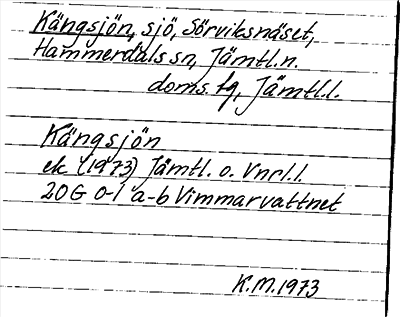 Kängsjön, sjö, Sörviksnäset,
Hammerdals sn, Jämtl.n.
doms.fg, Jämtl.l.
Kängsjön
ek (1973) Jämtl. o. Vnrl.l.
20G 0-1 a-b Vimmarvattnet
K.M.1973